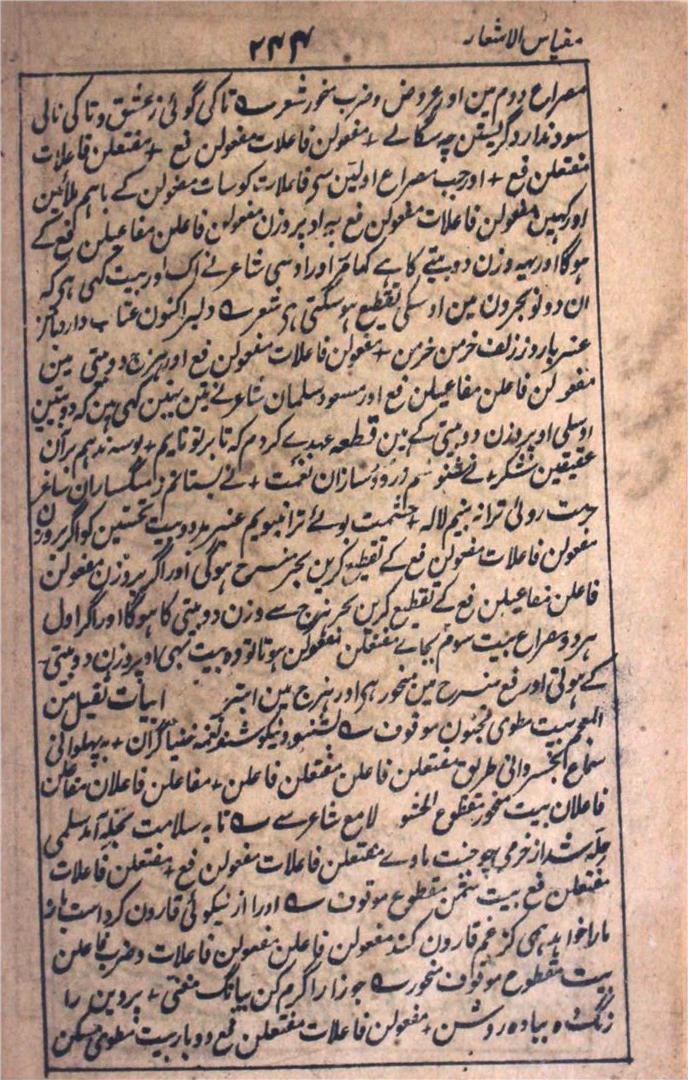 مقیاس الاشعار
۲۴۴
مصراع دوم مین اور عروض و ضرب منحور شعر تا کی گوئی ز عشق و تا کی نالی
سود ندارد گریستن چه سگالے + مفعولن فاعلات مفعولن فع + مفتعلن فاعلات
مفتعلن فع + اور جب مصراع اولین سے فاعلات کو سات مفعولن کے باہم ملائین
اور کہین مفعولن فاعلات مفعولن فع یہ اد بروزن مفعولن فاعلن مفاعیلن فع کے
ہوگا اور یہہ وزن دو بیتے کا ہے کما مر اور اوسی شاعر نے اک اور بیت کہی ہی کہ
ان دونو بحرون مین اوسکی تقطیع ہو سکتی ہی شعر دلبر اکنون عتاب دارد
عنبر بار و ز زلف خرمن خرمن + مفعولن فاعلات مفعولن فع اور ہزج دو بیتی مین
مفعولن فاعلن مفاعیلن فع اور مسعود سلمان شاعر نے تین بیتین کہی ہین کہ دو بیتین
اوسکی اوپر وزن دو بیتی کے ہین قطعہ عہدے کردم کہ تا بر تو نایم + بوسہ ندہم بران
عقیقین شکر نے شنوسم نعمت + نے بستانم ز میگساران ساغر
جت روئی ترا نہ بینم لالہ + چشمت بوئے ترا نبویم عنبر ہر دو بیت نخستین کو اگر بروزن
مفعولن فاعلات مفعولن فع کے تقطیع کرین بحر منسرح ہوگی اور اگر بروزن مفعولن
فاعلن مفاعیلن فع کے تقطیع کرین بحر ہزج سے وزن دو بیتی کا ہوگا اور اگر اول
ہر دو مصراع بیت سوم بجاے مفتعلن مفعولن ہوتا تو وہ بیت بھی اوپر وزن دو بیتی
کے ہوتی اور فع منسرح مین منحور ہی اور ہزج مین ابتر ابیات ثقیل من
المعجم بیت مطوی مخبون موقوف بشنو و نیکو شنو نغمہ خنیاگران + بہ پہلوانی
سماع بخسروانی طریق مفتعلن فاعلن مفتعلن فاعلن + مفاعلن فاعلان مفاعلن
فاعلان بیت منحور مقطوع الحشو لامع شاعر سے تا بہ سلامت بحلہ آمد سلمی
حلہ شد از خرمی چو جنت ماوے مفتعلن فاعلات مفعولن فع + مفتعلن فاعلات
مفتعلن فع بیت مثمن مقطوع موقوف اورا از نیکوئی قارون کردہ است
مارا خواہد ہمی کز غم قارون کند مفعولن فاعلن مفعولن فاعلات و ضرب فاعلن
بیت مقطوع موقوف منحور جوزا را گرم کن بیانگ مغنی + پروین را
زنگ دہ ببادہ روشن + مفعولن فاعلات مفتعلن فع دو بار بیت مطوی مسکن